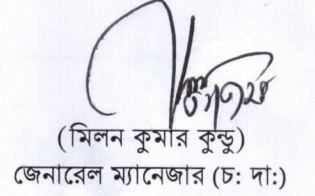 (মিলন কুমার কুন্ডু)
জেনারেল ম্যানেজার (চ: দা:)